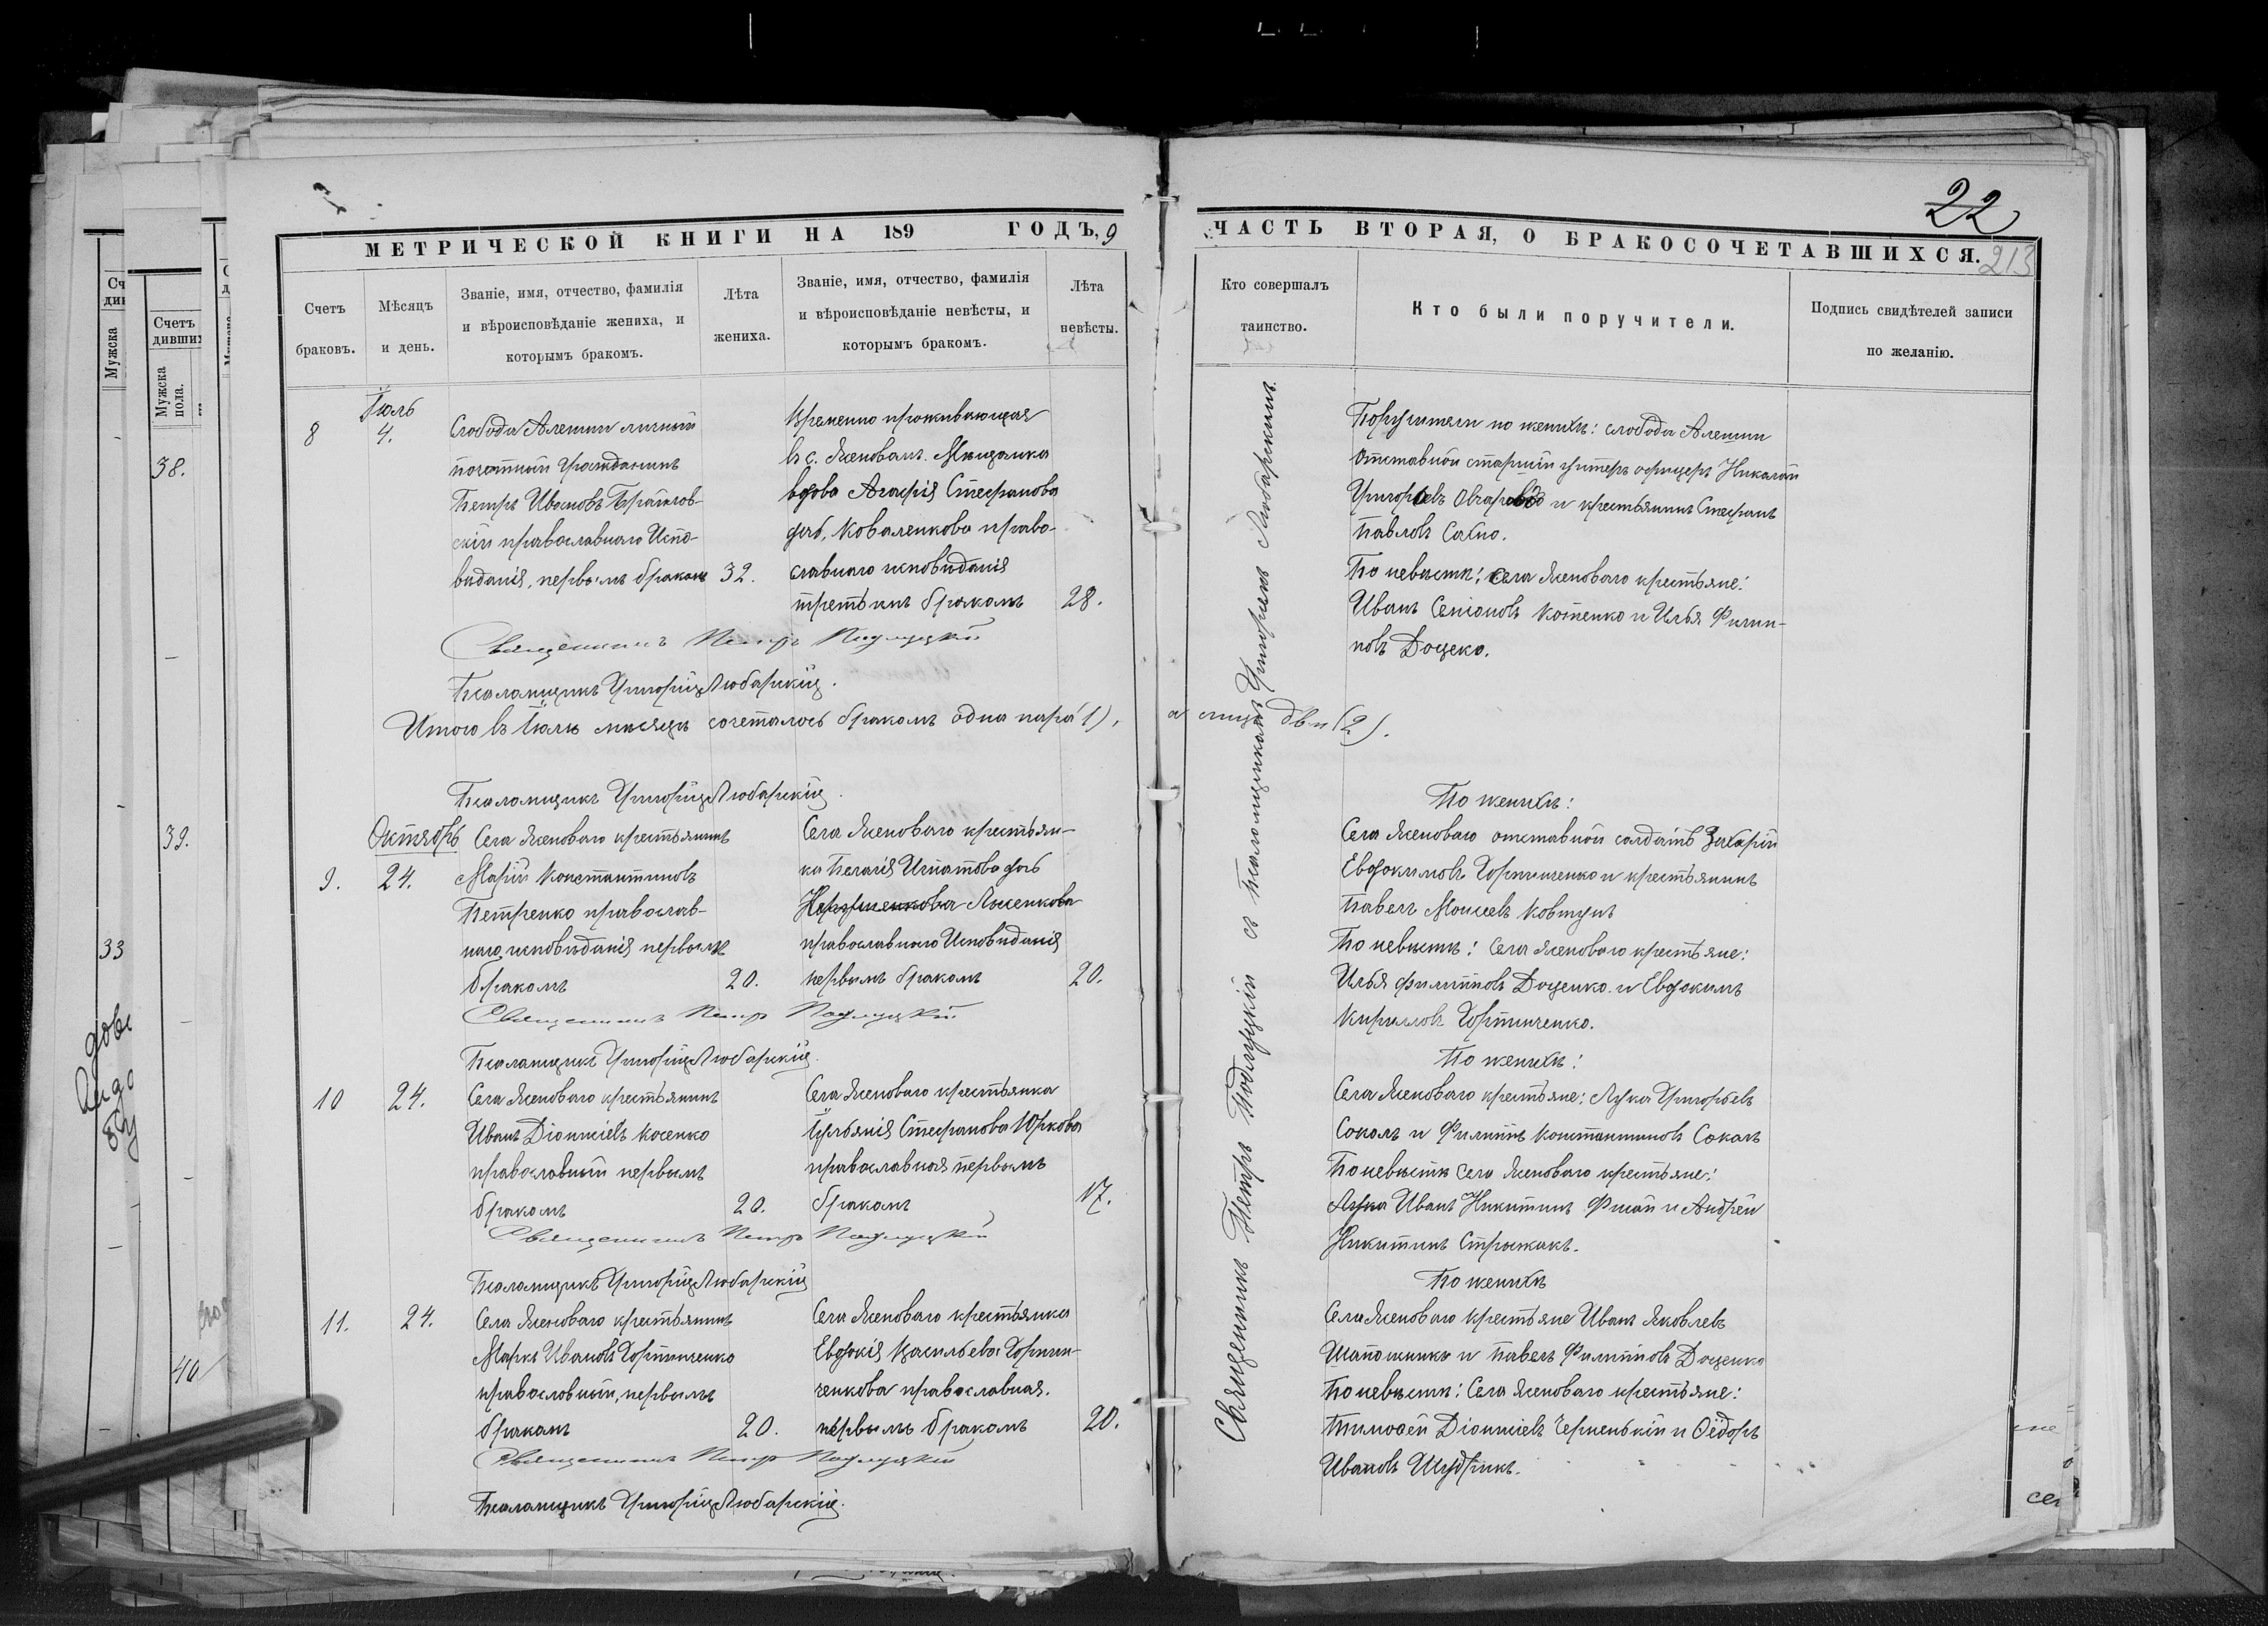 22
213
МЕТРИЧЕСКОЙ КНИГИ НА 189 ГОДЪ, 9
Счетъ браковъ.
Мѣсяцъ и день.
Званіе, имя, отчество, фамилія и вѣроисповѣданіе жениха, и которымъ бракомъ.
Лѣта жениха.
Званіе, имя, отчество, фамилія и вѣроисповѣданіе невѣсты, и которымъ бракомъ.
Лѣта невѣсты.
8
Іюль
4.
Слободы Алешни личный
почетный Гражданинъ
Петръ Ивановъ
скій православнаго Испо-
вѣданія, первымъ бракомъ 32.
Временно проживающая
въ с. Ясеновомъ. Мѣщанка
вдова Агафія Стефанова
дочь, Коваленкова право-
славнаго исповѣданія
третьимъ бракомъ 28.
Священникъ Петръ Подлуцкій
Псаломщикъ Григорій Любарскій.
Итого въ Іюлѣ мѣсяцѣ сочеталось бракомъ одна пара (1), а лицъ двѣ (2).
Псаломщикъ Григорій Любарскій.
Октябрь
9. 24.
Села Ясеноваго крестьянинъ
Марій Константиновъ
Петренко православ-
наго исповѣданія первымъ
бракомъ 20.
Села Ясеноваго крестьян-
ка Пелагія Игнатова дочь
Лысенкова
православнаго Исповѣданія
первымъ бракомъ 20.
Священникъ Петръ Подлуцкій
Псаломщикъ Григорій Любарскій.
10 24.
Села Ясеноваго крестьянинъ
Иванъ Діонисіевъ Косенко
православный первымъ
бракомъ 20.
Села Ясеноваго крестьянка
Іуліанія Стефанова Юркова
православная первымъ
бракомъ 17.
Священникъ Петръ Подлуцкій
Псаломщикъ Григорій Любарскій
11. 24.
Села Ясеноваго крестьянинъ
Маркъ Ивановъ Гортинченко
православный, первымъ
бракомъ 20.
Села Ясеноваго крестьянка
Евдокія Васильева Гортин-
ченкова православная.
первымъ бракомъ 20.
Священникъ Петръ Подлуцкій
Псаломщикъ Григорій Любарскій.
ЧАСТЬ ВТОРАЯ, О БРАКОСОЧЕТАВШИХСЯ.
Кто совершалъ таинство.
Кто были поручители.
Подпись свидѣтелей записи по желанію.
Священникъ Петръ Подлуцкій съ Псаломщикомъ Григоріемъ Любарскимъ.
Поручители по женихѣ: слободы Алешни
Отставной старшій унтеръ офицеръ Николай
Григорьевъ и крестьянинъ Стефанъ
Павловъ Сахно.
По невѣстѣ: Села Ясеноваго крестьяне:
Иванъ Семіоновъ Котенко и Илья Фили-
повъ Доценко.
По женихѣ:
Села Ясеноваго отставной солдатъ Захарій
Евдокимовъ Гортинченко и крестьянинъ
Павелъ Моисеевъ Ковтунъ
По невѣстѣ: Села Ясеноваго крестьяне:
Илья Филипповъ Доценко и Евдокимъ
Кирилловъ Гортинченко.
По женихѣ:
Села Ясеноваго крестьяне: Лука Григорьевъ
Соколъ и Филиппъ Константиновъ Соколъ
По невѣстѣ Села Ясеноваго крестьяне:
Лука Иванъ Никитинъ и Андрей
Никитинъ Стрижакъ.
По женихѣ
Села Ясеноваго крестьяне Иванъ Яковлевъ
Шапошникъ и Павелъ Филипповъ Доценко
По невѣстѣ: Села Ясеноваго крестьяне:
Тимофей Діонисіевъ Черненькій и Ѳедоръ
Ивановъ Шудрикъ.
Мужска
Счетъ
дивших
Мужска
пола.
38.
39.
33
40